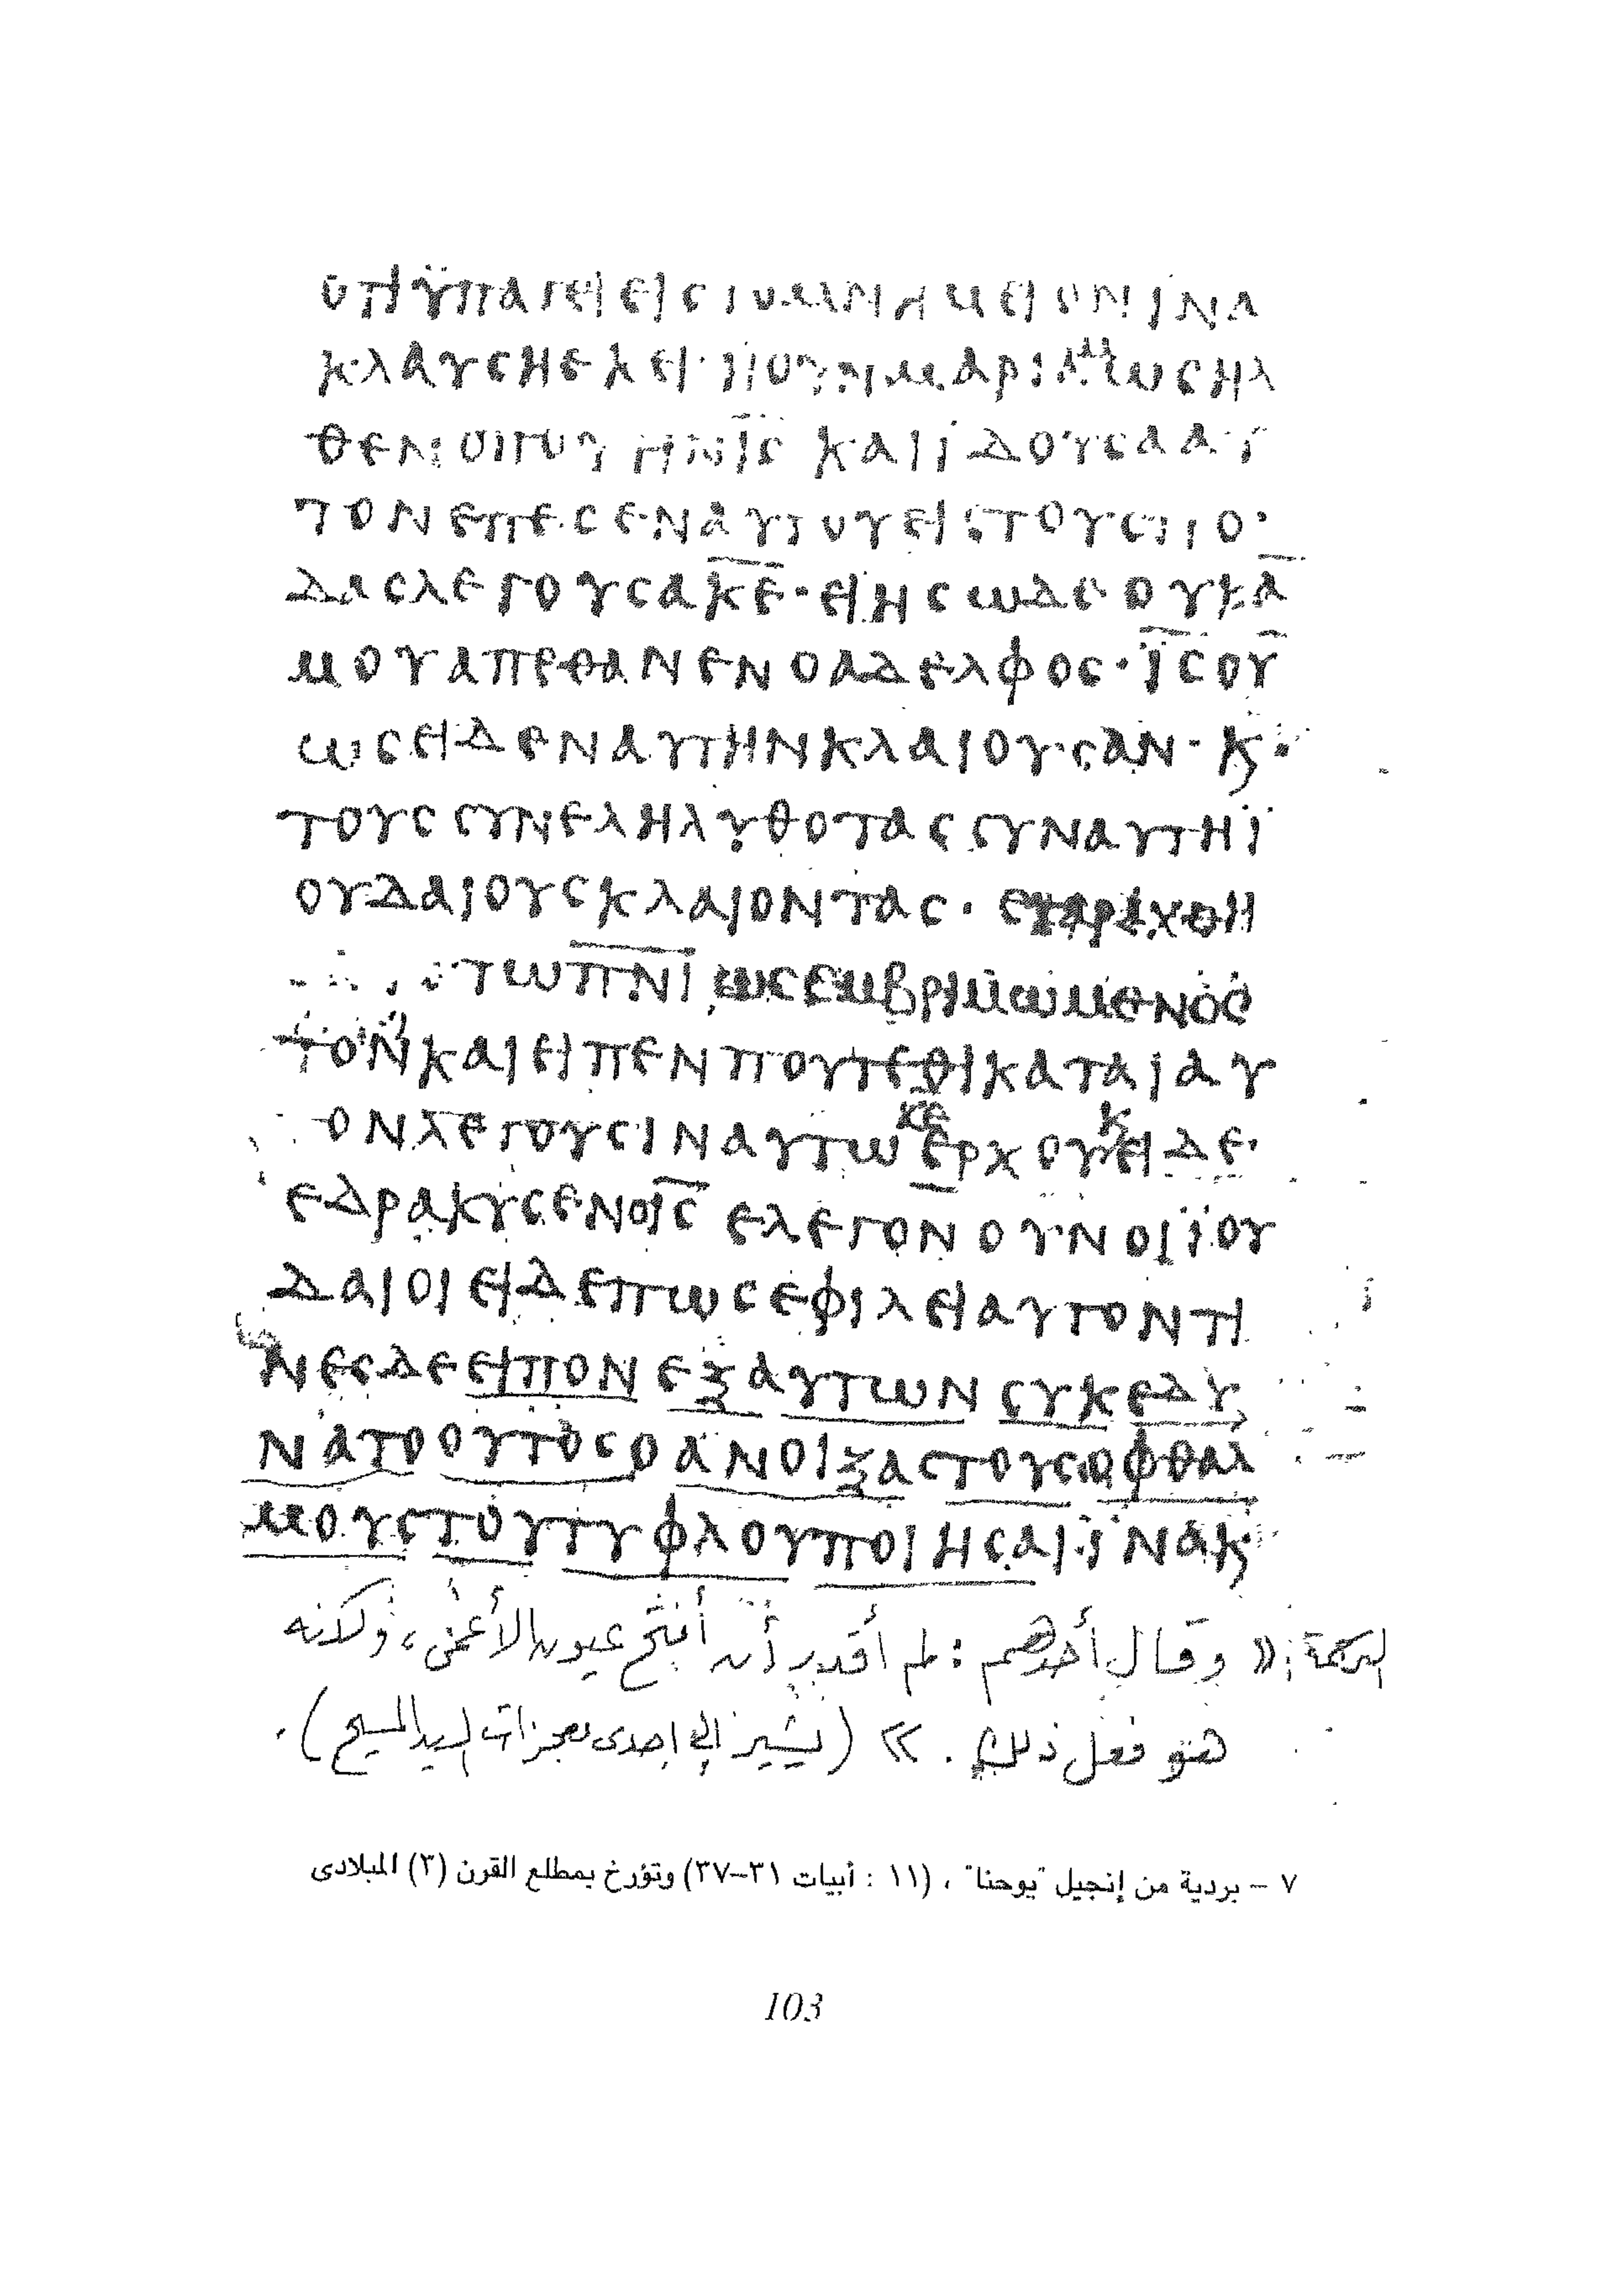 ΟΤΙ ΫΠΑΓΕΙ ΕΙΣ ΤΟ ΜΝΗΜΕΙΟΝ ΙΝΑ
ΚΛΑΥΣΗ ΕΚΕΙ· Η ΟΥΝ ΜΑΡΙΑΜ ΩΣ ΗΛ
ΘΕΝ ΟΠΟΥ ΗΝ ΙΣ ΚΑΙ ΙΔΟΥΣΑ ΑΥ
ΤΟΝ ΕΠΕΣΕΝ ΑΥΤΟΥ ΕΙΣ ΤΟΥΣ ΠΟ
ΔΑΣ ΛΕΓΟΥΣΑ ΚΕ· ΕΙ ΗΣ ΩΔΕ ΟΥΚ Α
ΜΟΥ ΑΠΕΘΑΝΕΝ Ο ΑΔΕΛΦΟΣ· ΪΣ ΟΥ
ΩΣ ΕΙΔΕΝ ΑΥΤΗΝ ΚΛΑΙΟΥΣΑΝ· Κ
ΤΟΥΣ ΣΥΝΕΛΗΛΥΘΟΤΑΣ ΣΥΝ ΑΥΤΗ Ϊ
ΟΥΔΑΙΟΥΣ ΚΛΑΙΟΝΤΑΣ· ΕΤΑΡΑΧΘΗ
ΤΩ ΠΝΙ ΩΣ ΕΜΒΡΙΜΩΜΕΝΟΣ
ΤΟΝ ΚΑΙ ΕΙΠΕΝ ΠΟΥ ΤΕΘΙΚΑΤΑΙ ΑΥ
ΟΝ ΛΕΓΟΥΣΙΝ ΑΥΤΩ ΚΕ ΕΡΧΟΥ Κ ΕΙΔΕ·
ΕΔΑΚΡΥΣΕΝ Ο ΙΣ ΕΛΕΓΟΝ ΟΥΝ ΟΙ ΪΟΥ
ΔΑΙΟΙ ΕΙΔΕ ΠΩΣ ΕΦΙΛΕΙ ΑΥΤΟΝ ΤΙ
ΝΕΣ ΔΕ ΕΙΠΟΝ ΕΞ ΑΥΤΩΝ ΣΥΚ ΕΔΥ
ΝΑΤΟ ΟΥΤΟΣ Ο ΑΝΟΙΞΑΣ ΤΟΥΣ ΟΦΘΑΛ
ΜΟΥΣ ΤΟΥ ΤΥΦΛΟΥ ΠΟΙΗΣΑΙ· ΪΝΑ Κ
الترجمة: « وقال أحدهم : لم أقدر أن أفتح عيون الأعمى، ولكنه
هو فعل ذلك . » (يشير إلى إحدى معجزات السيد المسيح).
٧ – بردية من إنجيل "يوحنا" ، (١١ : أبيات ٣١–٣٧) وتؤرخ بمطلع القرن (٣) الميلادى
103